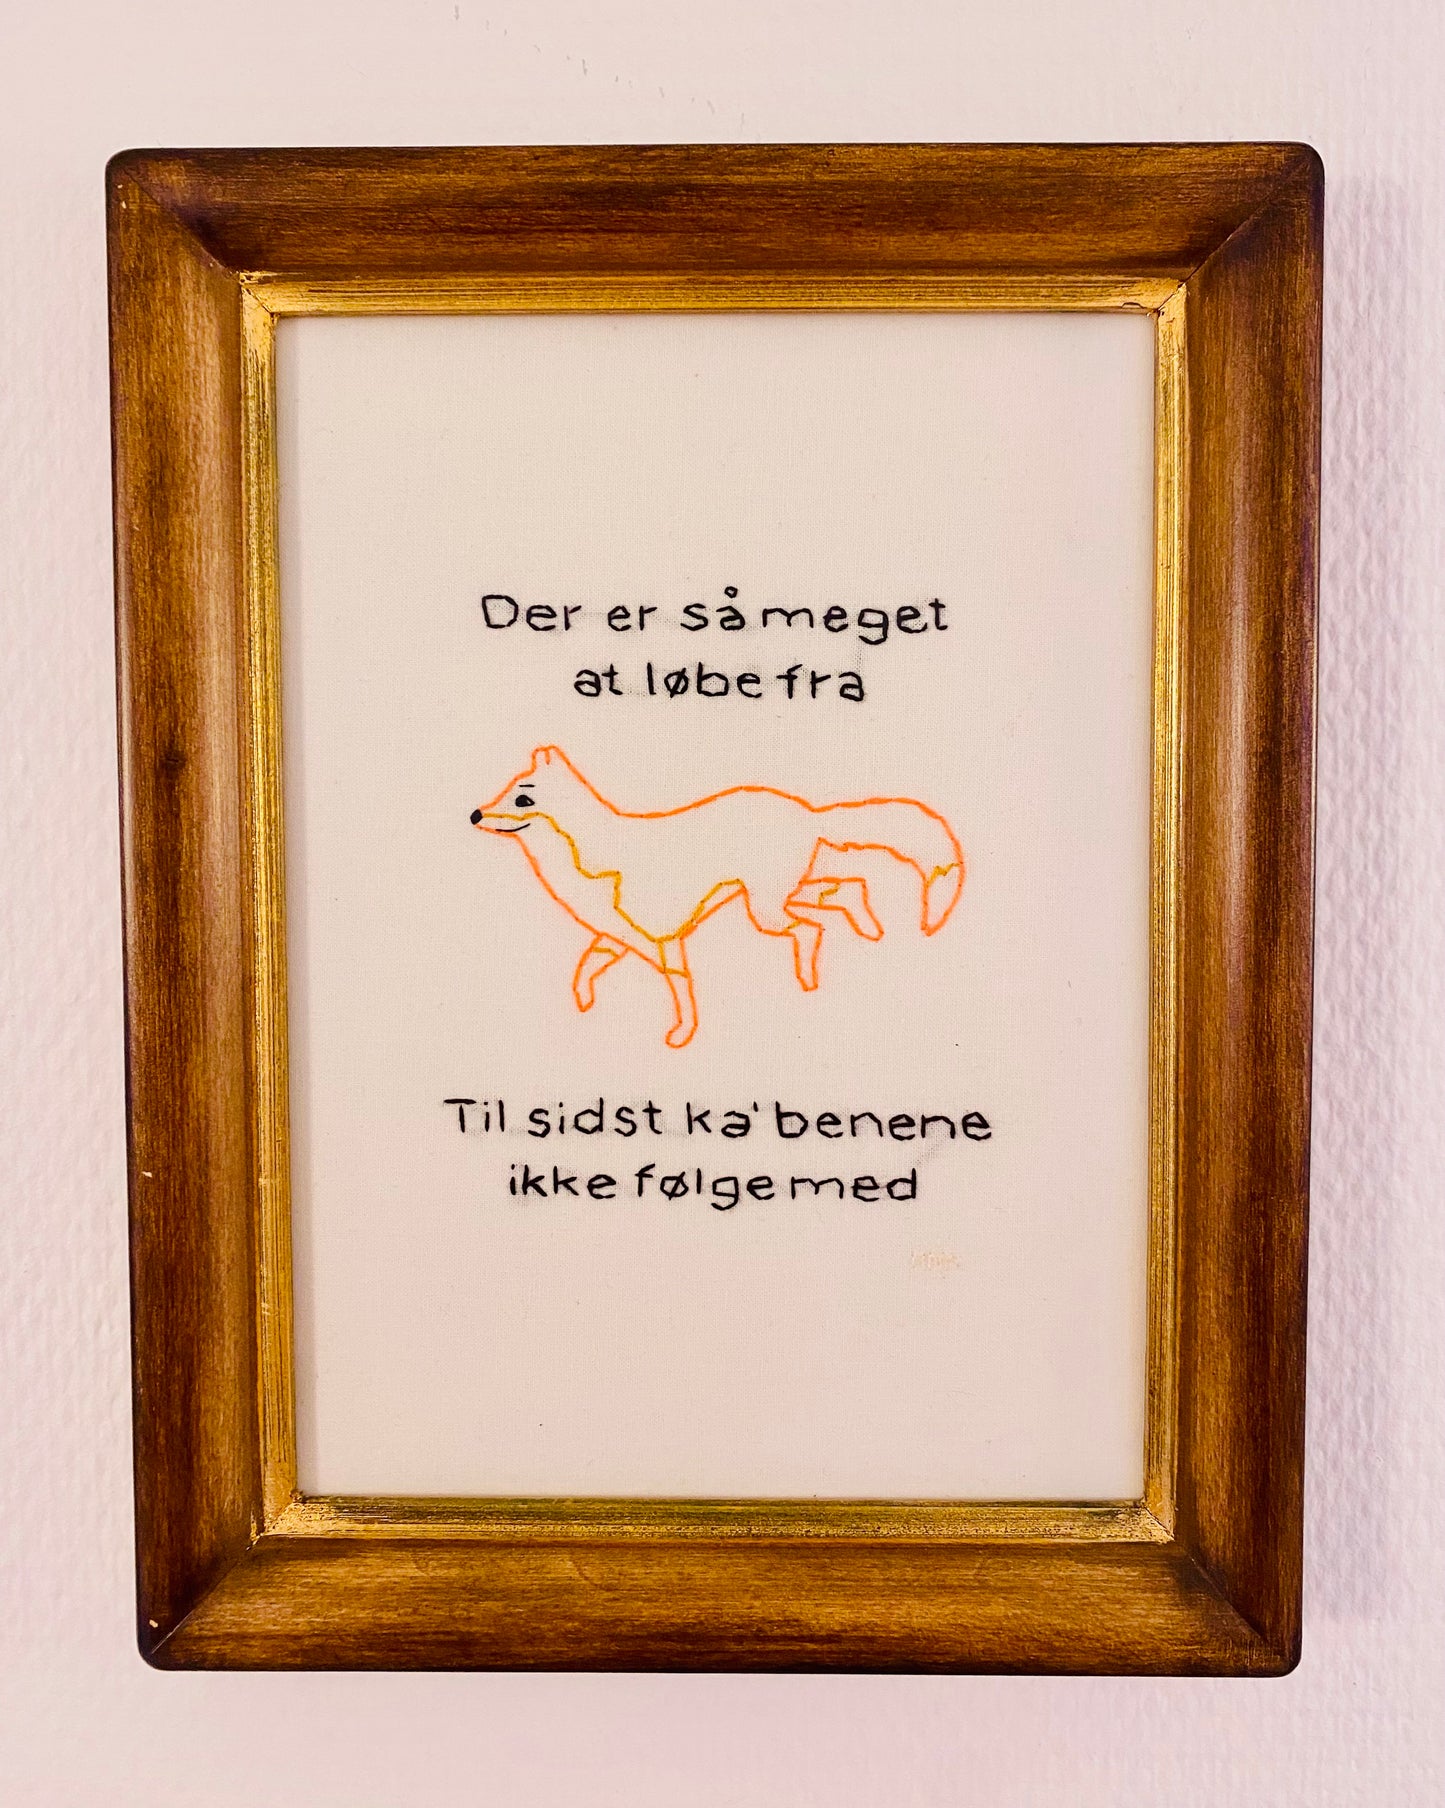 Der er så meget
at løbe fra
Til sidst ka' benene
ikke følge med